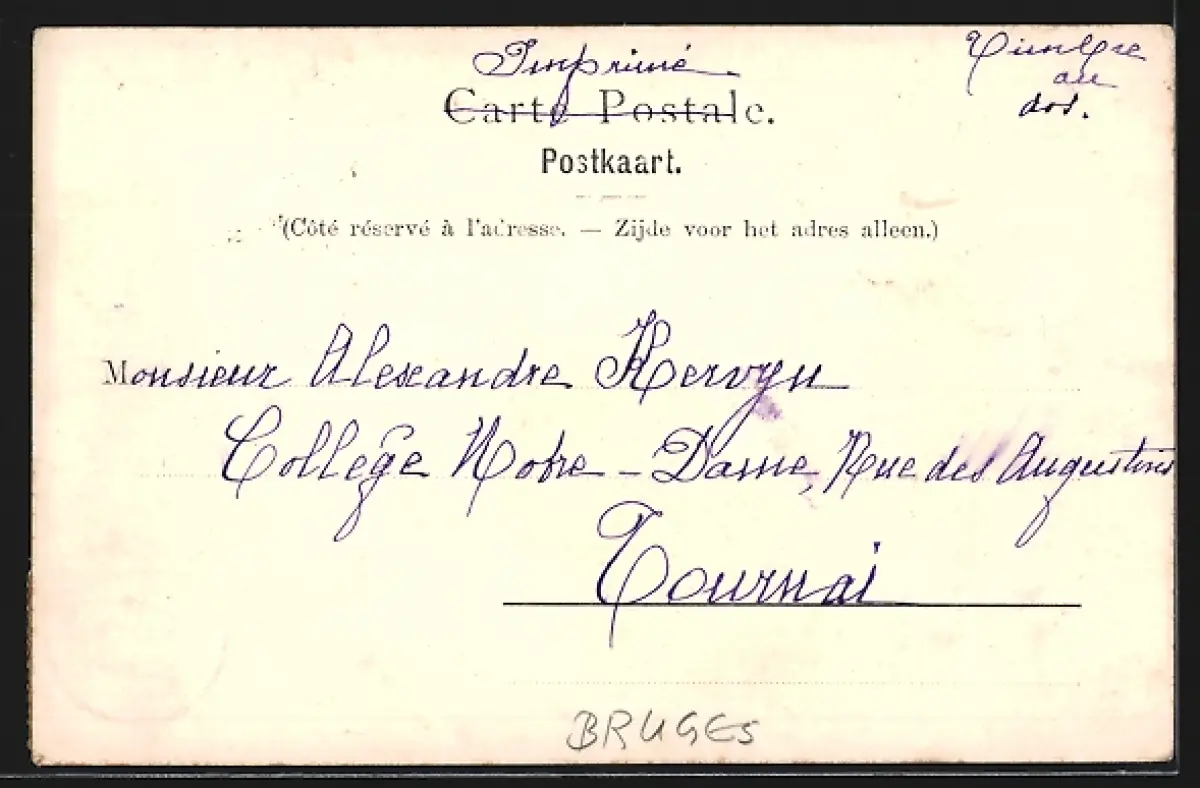 Imprimé.
Timbre
au
dos.
Carte Postale.
Postkaart.
(Côté réservé à l'adresse. — Zijde voor het adres alleen.)
Monsieur Alexandre Kervyn
Collège Notre-Dame, Rue des Augustins
Tournai
BRUGES